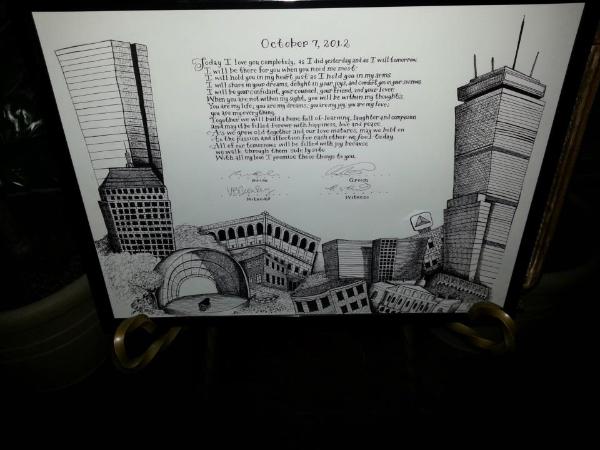 October 7, 2012
Today I love you completely, as I did yesterday and as I will tomorrow.
I will be there for you when you need me most.
I will hold you in my heart just as I hold you in my arms.
I will share in your dreams, delight in your joys, and comfort you in your sorrows.
I will be your confidant, your counsel, your friend, and your lover.
When you are not within my sight, you will be within my thoughts.
You are my life; you are my dreams; you are my joy; you are my love;
you are my everything.
Together we will build a home full of learning, laughter and compassion
and may it be filled forever with happiness, love and peace.
As we grow old together and our love matures, may we hold on
to the passion and affection for each other we feel today.
All of our tomorrows will be filled with joy because
we walk through them side by side.
With all my love I promise these things to you.
Bride Groom
Witness Witness